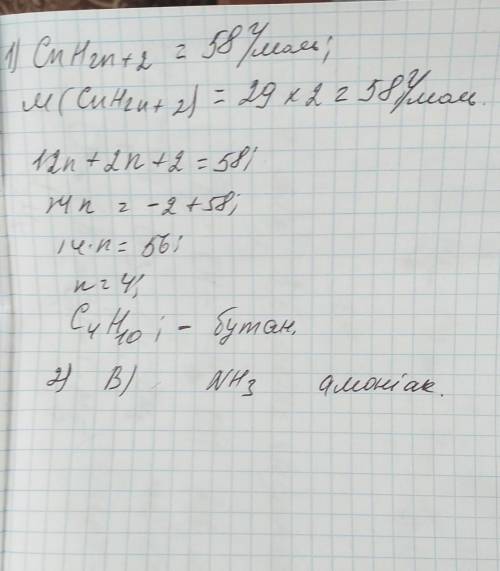 1) CnH2n+2 = 58 г/моль;
M(CnH2n+2) = 29 x 2 = 58 г/моль.
12n + 2n + 2 = 58;
14n = -2 + 58;
14·n = 56;
n = 4;
C4H10; - бутан.
2) В) NH3 амоніак.